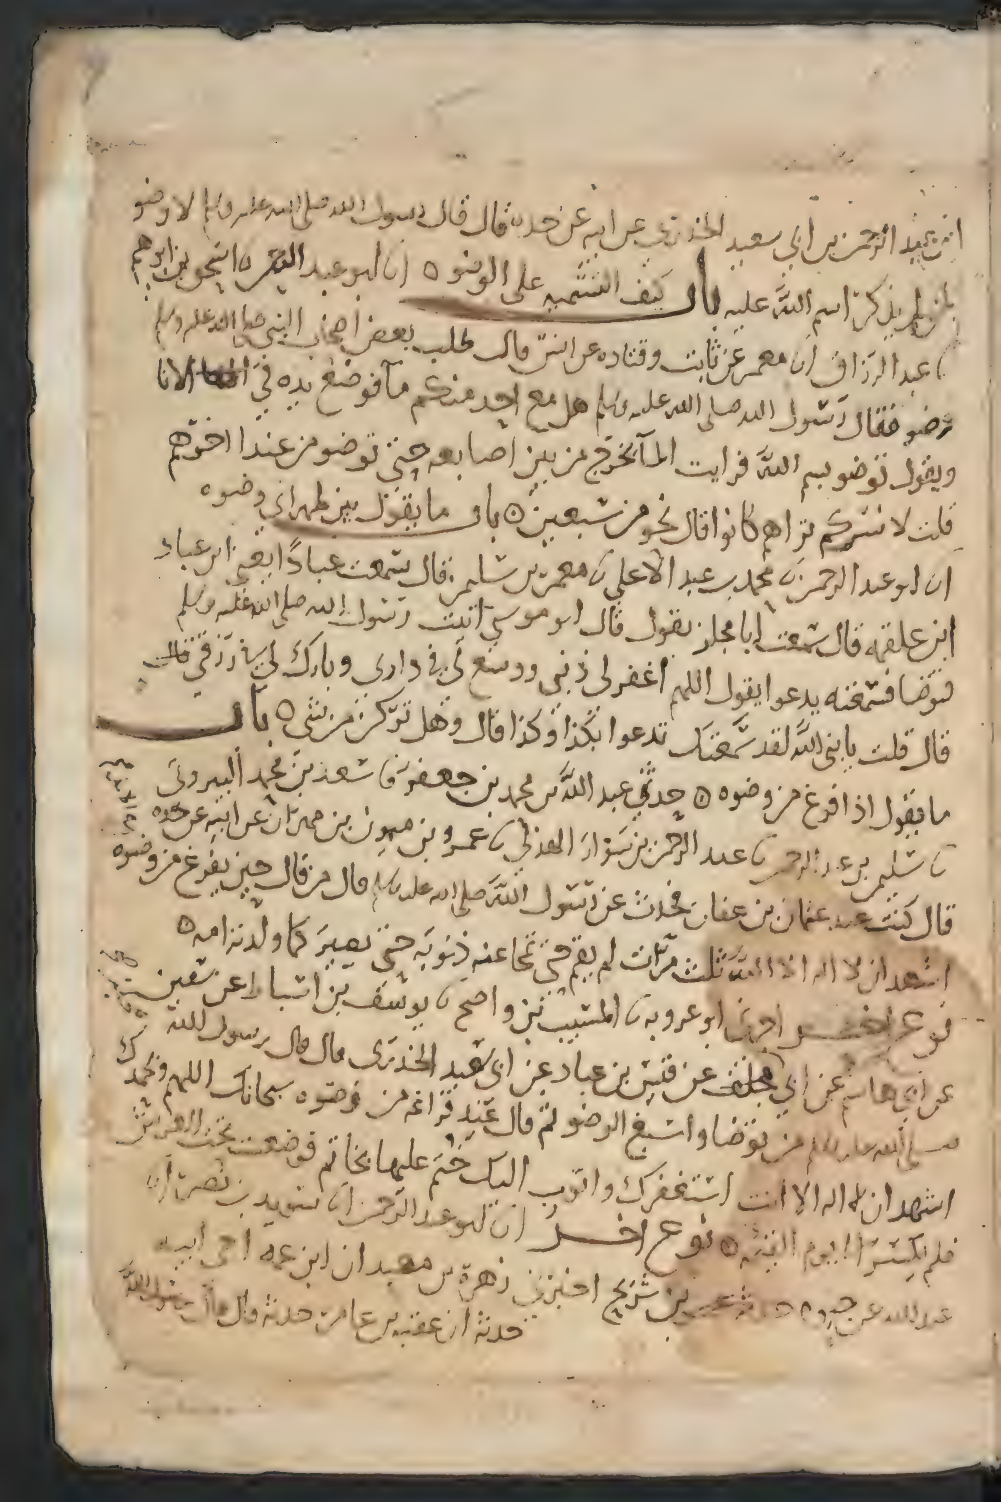 ابن عبد الرحمن بن ابي سعيد الخدري عن ابيه عن جده قال قال رسول الله صلى الله عليه وسلم لا وضو
لمن لم يذكر اسم الله عليه باب كيف التسميه على الوضو ان ابو عبد الرحمن اسحق بن ابرهيم
عبد الرزاق ان معمر عن ثابت وقتاده عن انس قال طلب بعض اصحاب النبي صلى الله عليه وسلم
وضو فقال رسول الله صلى الله عليه وسلم هل مع احد منكم مآ فوضع يده في الانا
ويقول توضو بسم الله فرايت المآ يخرج من بين اصابعه حتى توضو من عند اخرهم
قلت لانس كم تراهم كانوا قال نحو من سبعين باب ما يقول بين ظهراي وضوه
ان ابو عبد الرحمن محمد بن عبد الاعلى معمر بن سليمن قال سمعت عبادًا يعني ابن عباد
ابن علقمه قال سمعت ابا مجلز يقول قال ابو موسى اتيت رسول الله صلى الله عليه وسلم
فتوضا فسمعته يدعوا يقول اللهم اغفر لي ذنبي ووسع لي في داري وبارك لي في رزقي
قال قلت يا نبي الله لقد سمعتك تدعوا بكذا وكذا قال وهل تركن من شي باب
ما يقول اذا فرغ من وضوه حدثني عبد الله بن محمد بن جعفر سعد بن محمد البيروتي
سليمن بن عبد الرحمن عبد الرحمن بن سوار الهذلي عمرو بن ميمون بن مهران عن ابيه عن جده
قال كنت عند عثمان بن عفان فحدث عن رسول الله صلى الله عليه وسلم قال من قال حين يفرغ من وضوه
اشهد ان لا اله الا الله ثلث مرات لم يقم حتى تمحا عنه ذنوبه حتى يصير كما ولدته امه
نوع اخر اخبرني ابو عروبه المسيب بن واضح يوسف بن اسباط عن سفين
عن ابي هاشم عن ابي مجلز عن قيس بن عباد عن ابي سعيد الخدري قال قال رسول الله
صلى الله عليه وسلم من توضا واسبغ الوضو ثم قال عند فراغه من وضوه سبحانك اللهم وبحمدك
اشهد ان لا اله الا انت استغفرك واتوب اليك ختم عليها بخاتم فوضعت تحت العرش
فلم تكسر الى يوم القيمه نوع اخر ان ابو عبد الرحمن ان سويد بن نصر ان
عبد الله عن حيوه بن شريح اخبرني زهرة بن معبد ان ابن عمه اخي ابيه
حدثه ان عقبه بن عامر حدثه قال قال رسول الله